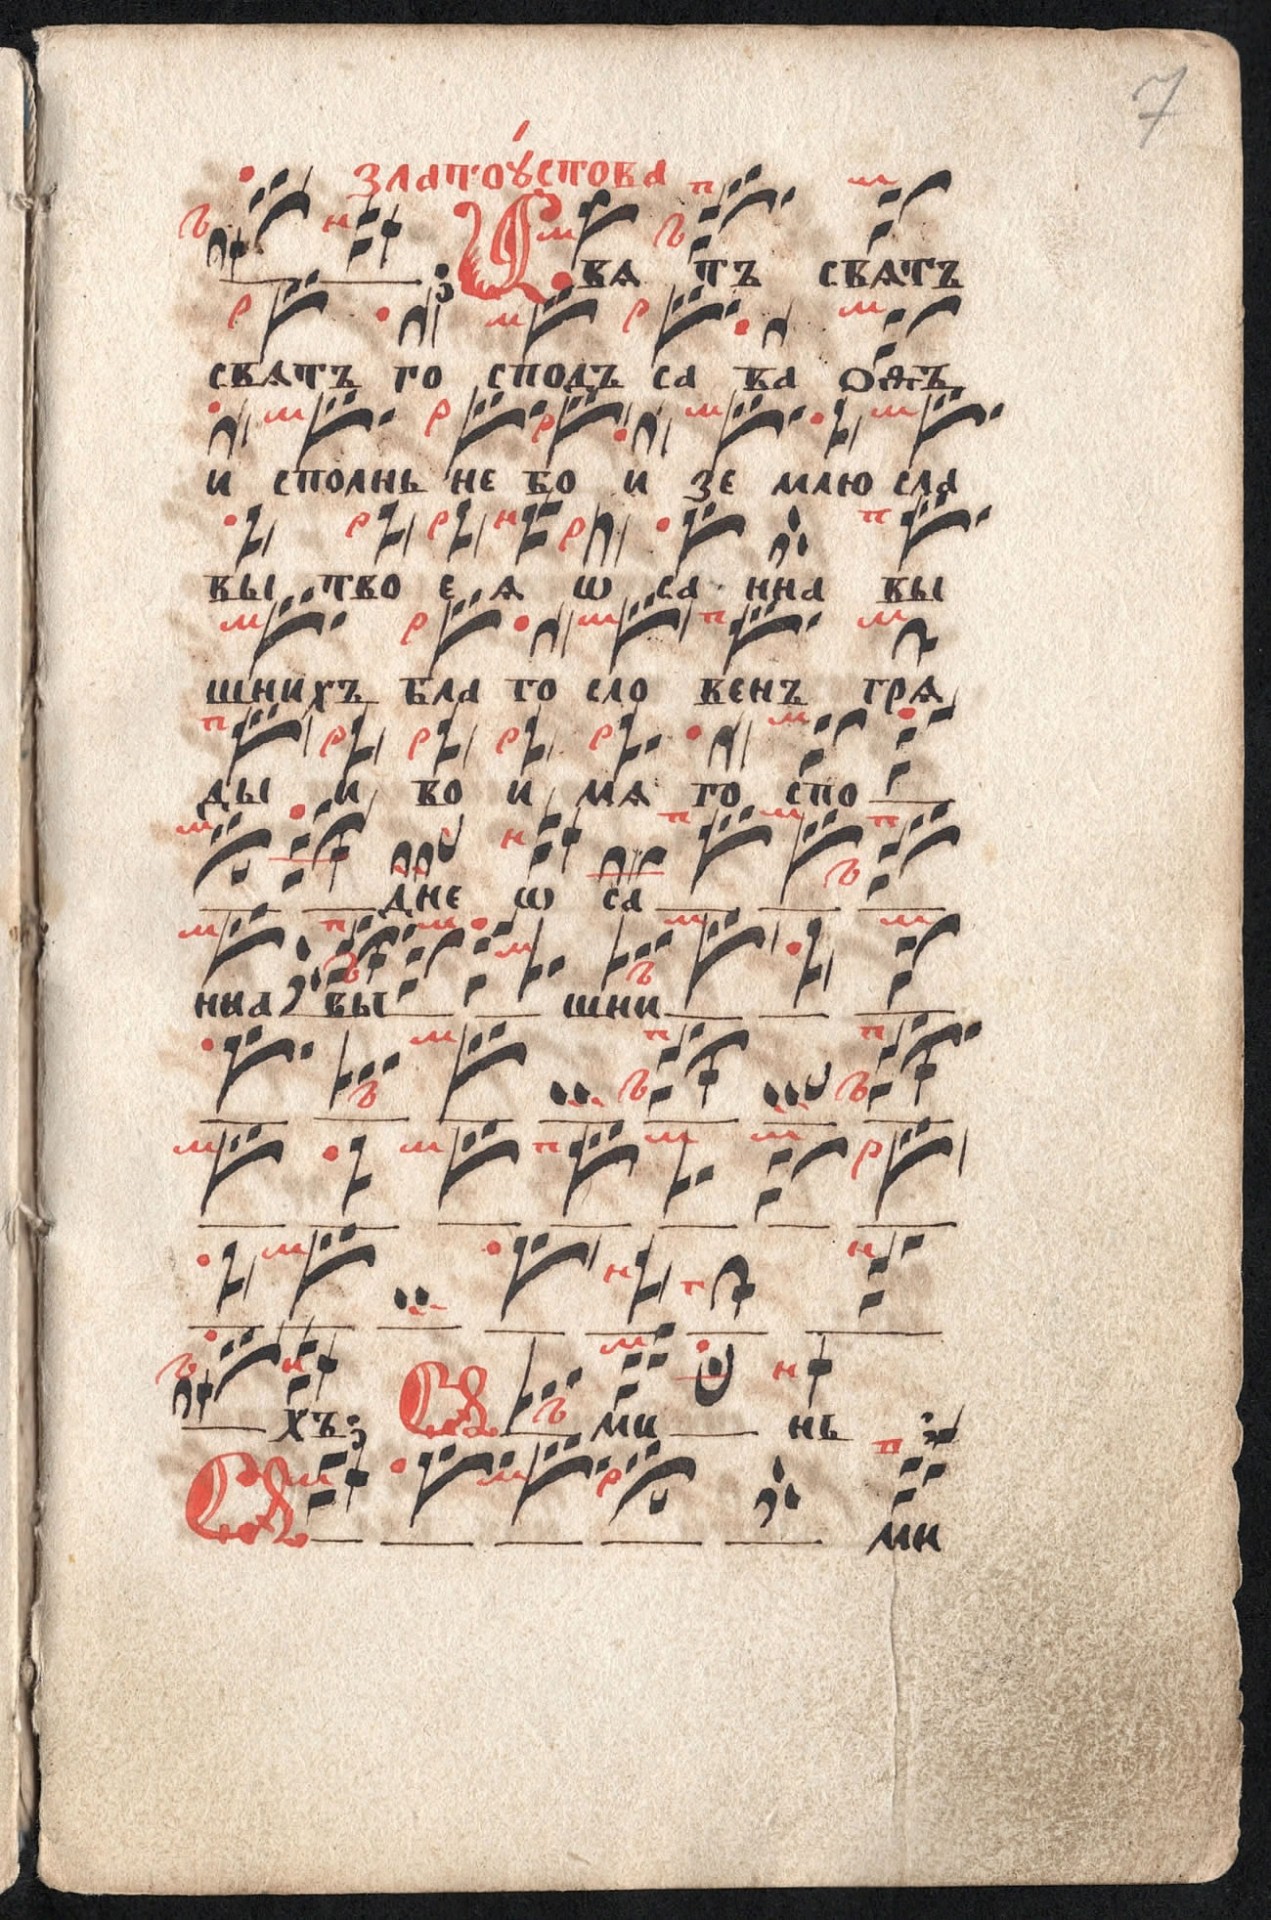 7
златоꙋстова
; Свѧ тъ свѧтъ
свѧтъ го сподь са ва ѡѳъ
и сполнь не бо и зе млю сла
вы тво е ѧ ѡ са нна вы
шнихъ бла го сло венъ грѧ
ды и во и мѧ го спо
дне ѡ са
нна вы шни
хъ; А ми нь
А ми